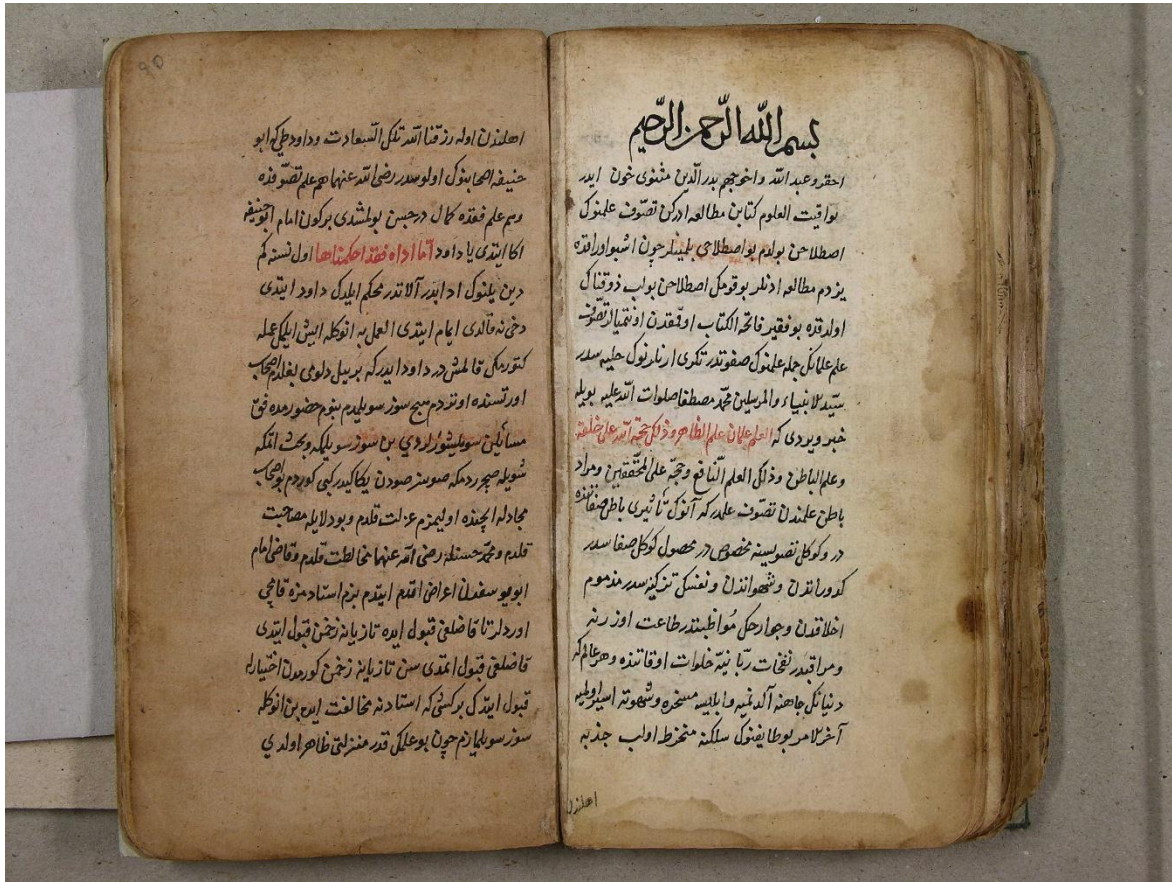 بسم الله الرحمن الرحيم
احقر وعبد الله واخوجهم بدر الدين مثنوى خون ايدر
يواقيت العلوم كتابن مطالعه ادركن تصوف علمنوك
اصطلاحن بولدم بو اصطلاحى بلمينلرچون اشبو اوراقده
يزدم مطالعه ادنلر بو قومك اصطلاحن بولب ذوقناك
اولدقده بو فقير فاتحة الكتاب اوقمقدن اونتميالر تصوف
علم علمانك جمله علمنوك صفوتدر تكرى ارنلرنوك حليه سدر
سيد الانبياء والمرسلين محمد مصطفا صلوات الله عليه بويله
خبر ويردى كه العلم علمان علم الظاهر وذلك حجة الله على خلقه
وعلم الباطن وذلك العلم النافع وحجة على المحققين ومراد
باطن علمندن تصوف علمدر كه آنوك تأثيرى باطن صفاتنده
در وكوكل تصويسنه مخصوص در محصول كوكل صفا سدر
كدوراتدن وشهواتدن ونفسك تزكيه سدر مذموم
اخلاقدن وجوارحك مواظبتدر طاعت اوزرنه
ومراقبدر نفحات ربانيه خلوات اوقاتنده وهر عالم كه
دنيانك جاهنه آلدنميه وابليسه مسخره وشهوته اسير اولميه
آخر الامر بو طايفنوك سلكنه منخرط اولب جذبه
اهلندن
90
اهلندن اوله رزقنا الله تلك السعادت وداود طى كه ابو
حنيفه اصحابنوك اولوسدر رضى الله عنهما هم علم تصوفده
وهم علم فقده كمال درجسن بولمشدى بركون امام ابو حنيفه
اكا ايتدى يا داود اما اداه فقد احكمناها اول نسته كم
دين بلنوك اد ايدر آلاتدر محكم ايلدك داود ايتدى
دخى نه قالدى امام ايتدى العمل به انوكله ايش ايلمك عمله
كتورمك قالمش در داود ايدر كه بر ييل دلومى بغلدم اصحاب
اورتسنده اوتردم هيچ سوز سويلمدم بنوم حضورمده فقه
مسائلين سويلشورلردى بن سوز سويلمكه وبحث اتمكه
شويله صبر دمكه صوسز صودن يكا كيدر كبى كوردم بو اصحاب
مجادله ايچنده اوليمزم عزلت قلدم وبودلايله مصاحبت
قلدم ومحمد حسنله رضى الله عنهما مخالطت قلدم وقاضى امام
ابو يوسفدن اعراض اقدم ايتدم بزم استادمزه قامچى
اوردلر تا قاضلغى قبول ايده تازيانه زخمن قبول ايتدى
قاضلغى قبول ايتمدى سن تازيانه زخمن كورمدن اختيارله
قبول ايتدك بر كشى كه استادنه مخالفت ايده بن انوكله
سوز سويلمازم چون بو علمك قدر منزلتى ظاهر اولدي